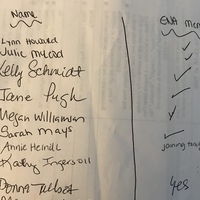 Name
ENA Mem
Lynn Howard
Julie McLeod
Kelly Schmidt
Jane Pugh
Megan Williamson
Sarah Mays
Annie Heinill
joining
Kathy Ingersoll
Donna Talbot
yes